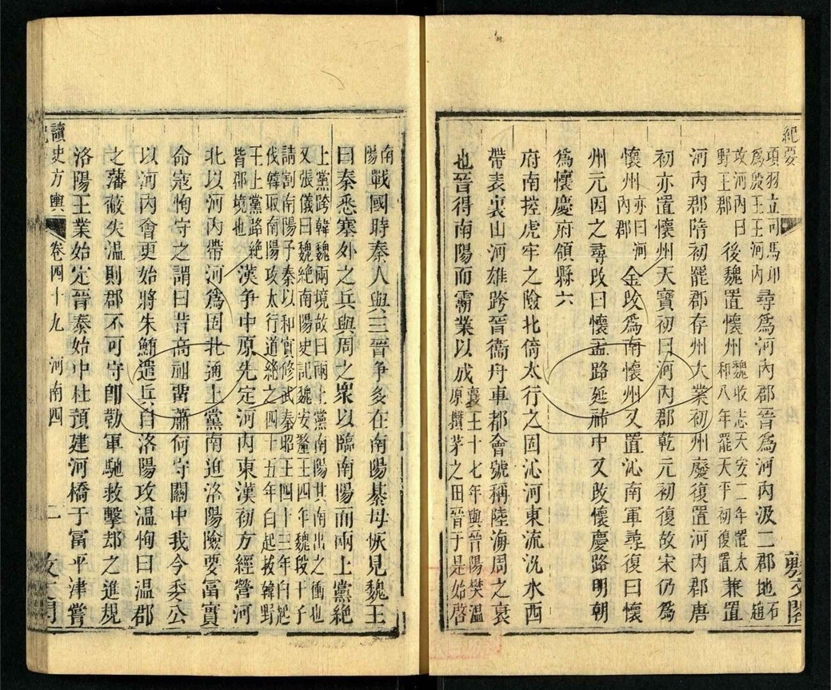 紀要
敷文閣
項羽立司馬卬
爲殷王王河內
尋爲河內郡晉爲河內汲二郡地
石趙
攻河內曰
野王郡
後魏置懷州
魏收志天安二年置太
和八年罷天平初復置
兼置
河內郡隋初罷郡存州大業初州廢復置河內郡唐
初亦置懷州天寶初曰河內郡乾元初復故宋仍爲
懷州
亦曰河
內郡
金改爲南懷州又置沁南軍尋復曰懷
州元因之尋改曰懷孟路延祐中又改懷慶路明朝
爲懷慶府領縣六
府南控虎牢之險北倚太行之固沁河東流沇水西
帶表裏山河雄跨晉衞舟車都會號稱陸海周之衰
也晉得南陽而霸業以成
襄王十七年與晉陽樊溫
原攢茅之田晉于是始啓
南
陽
戰國時秦人與三晉爭多在南陽綦毋恢見魏王
曰秦悉塞外之兵與周之衆以臨南陽而兩上黨絕
上黨跨韓魏兩境故曰兩上黨南陽其南出之衝也
又張儀曰魏絕南陽史記魏安釐王四年魏段干子
請割南陽予秦以和實修武秦昭王四十三年白起
伐韓取南陽攻太行道絕之四十五年白起拔韓野
王上黨路絕
皆郡境也
漢爭中原先定河內東漢初方經營河
北以河內帶河爲固北通上黨南迫洛陽險要富實
命寇恂守之謂曰昔高祖留蕭何守關中我今委公
以河內會更始將朱鮪遣兵自洛陽攻溫恂曰溫郡
之藩蔽失溫則郡不可守卽勒軍馳救擊却之進規
洛陽王業始定晉泰始中杜預建河橋于富平津嘗
讀史方輿
卷四十九 河南四
二
敷文閣